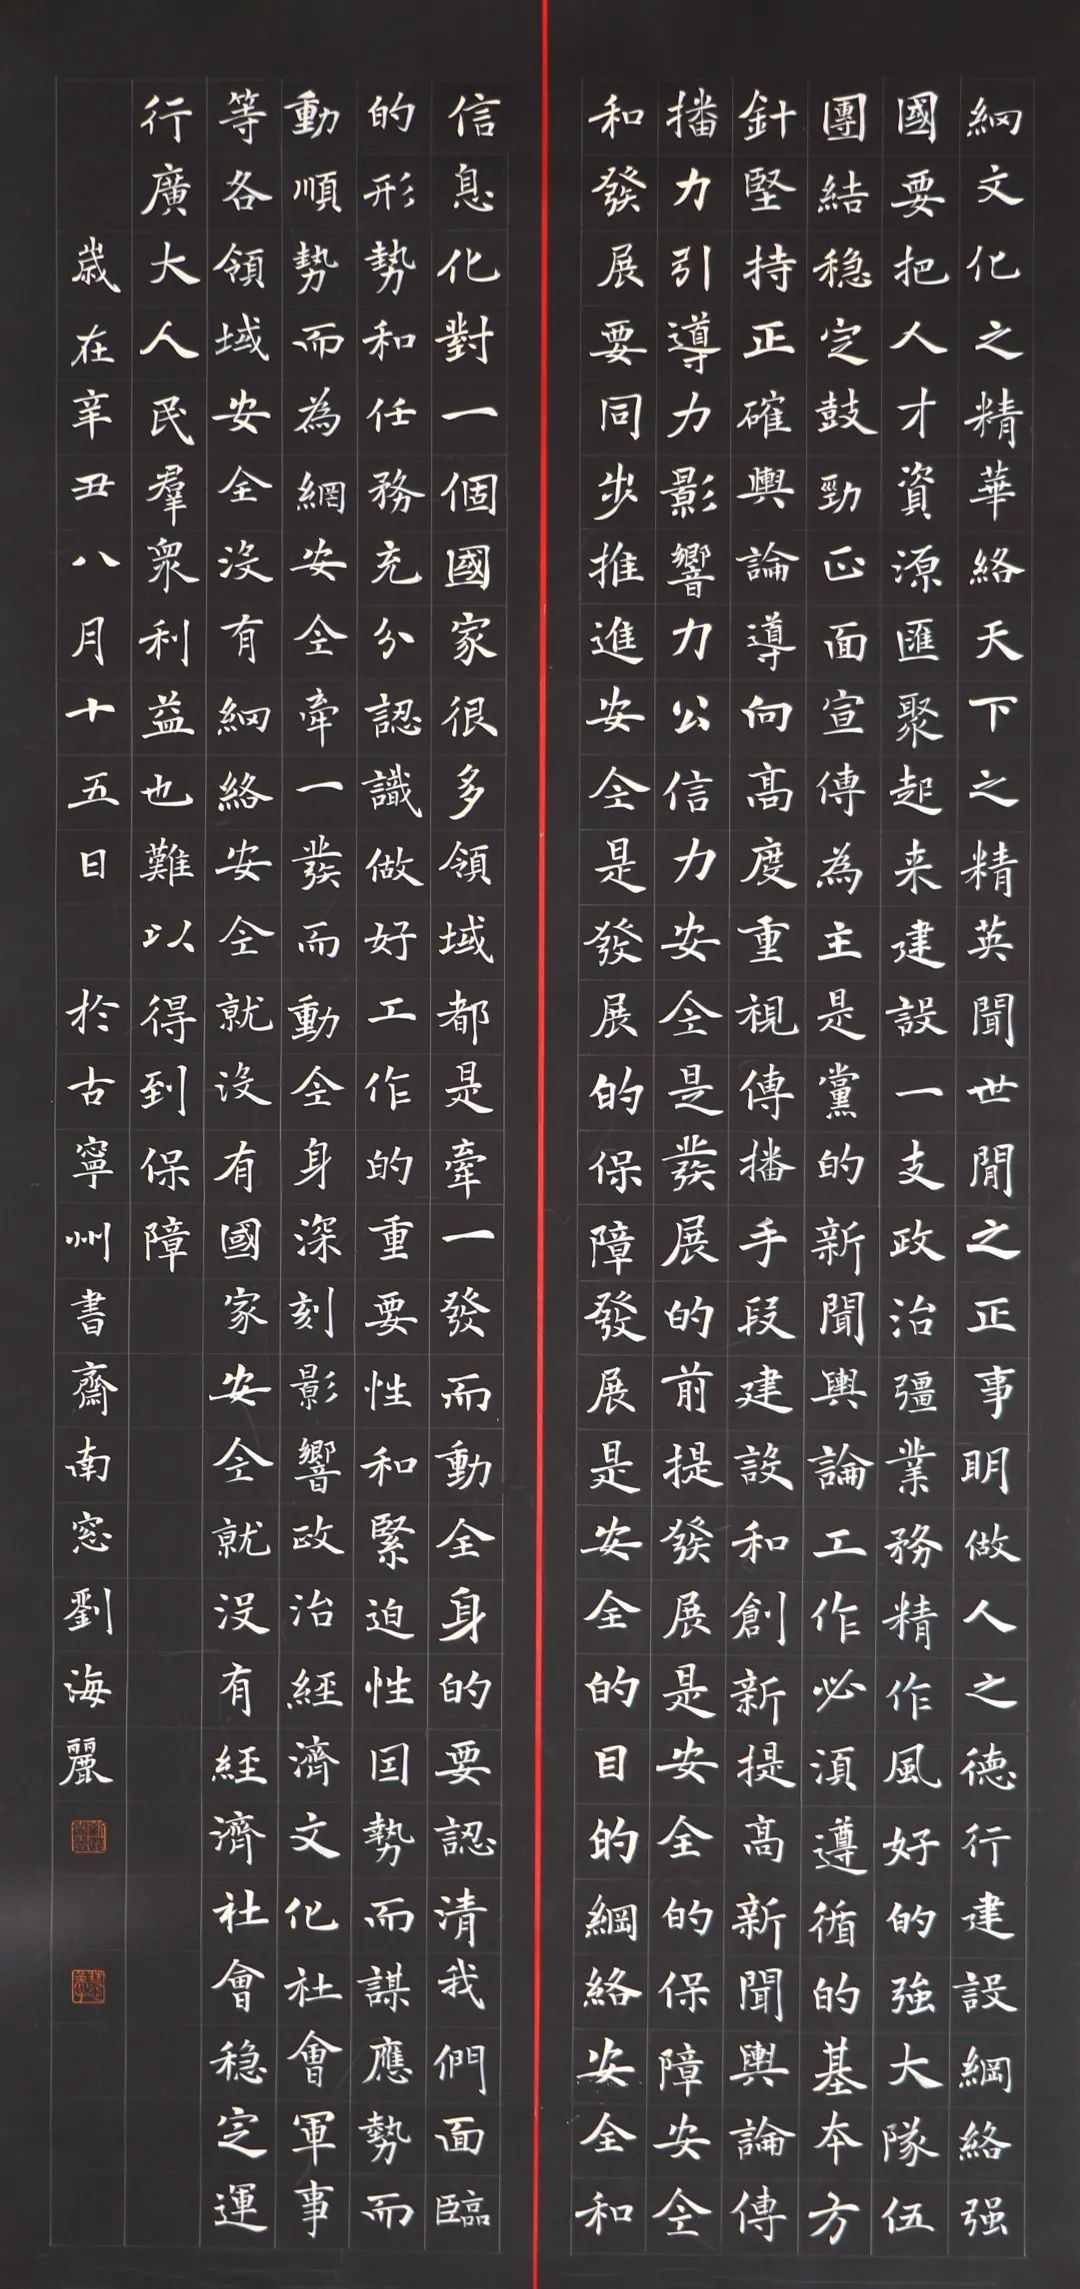 網文化之精華絡天下之精英聞世間之正事明做人之德行建設網絡强
國要把人才資源匯聚起来建設一支政治彊業務精作風好的強大隊伍
團結稳定鼓勁正面宣傳為主是黨的新聞輿論工作必須遵循的基本方
針堅持正確輿論導向高度重視傳播手段建設和創新提高新聞輿論傳
播力引導力影響力公信力安全是發展的前提發展是安全的保障安全
和發展要同步推進安全是發展的保障發展是安全的目的網絡安全和
信息化對一個國家很多領域都是牽一發而動全身的要認清我們面臨
的形勢和任務充分認識做好工作的重要性和緊迫性因勢而謀應勢而
動順勢而為網安全牽一發而動全身深刻影響政治經濟文化社會軍事
等各領域安全没有網絡安全就没有國家安全就没有經濟社會稳定運
行廣大人民羣衆利益也難以得到保障
歲在辛丑八月十五日 於古寧州書齋南窓劉海麗